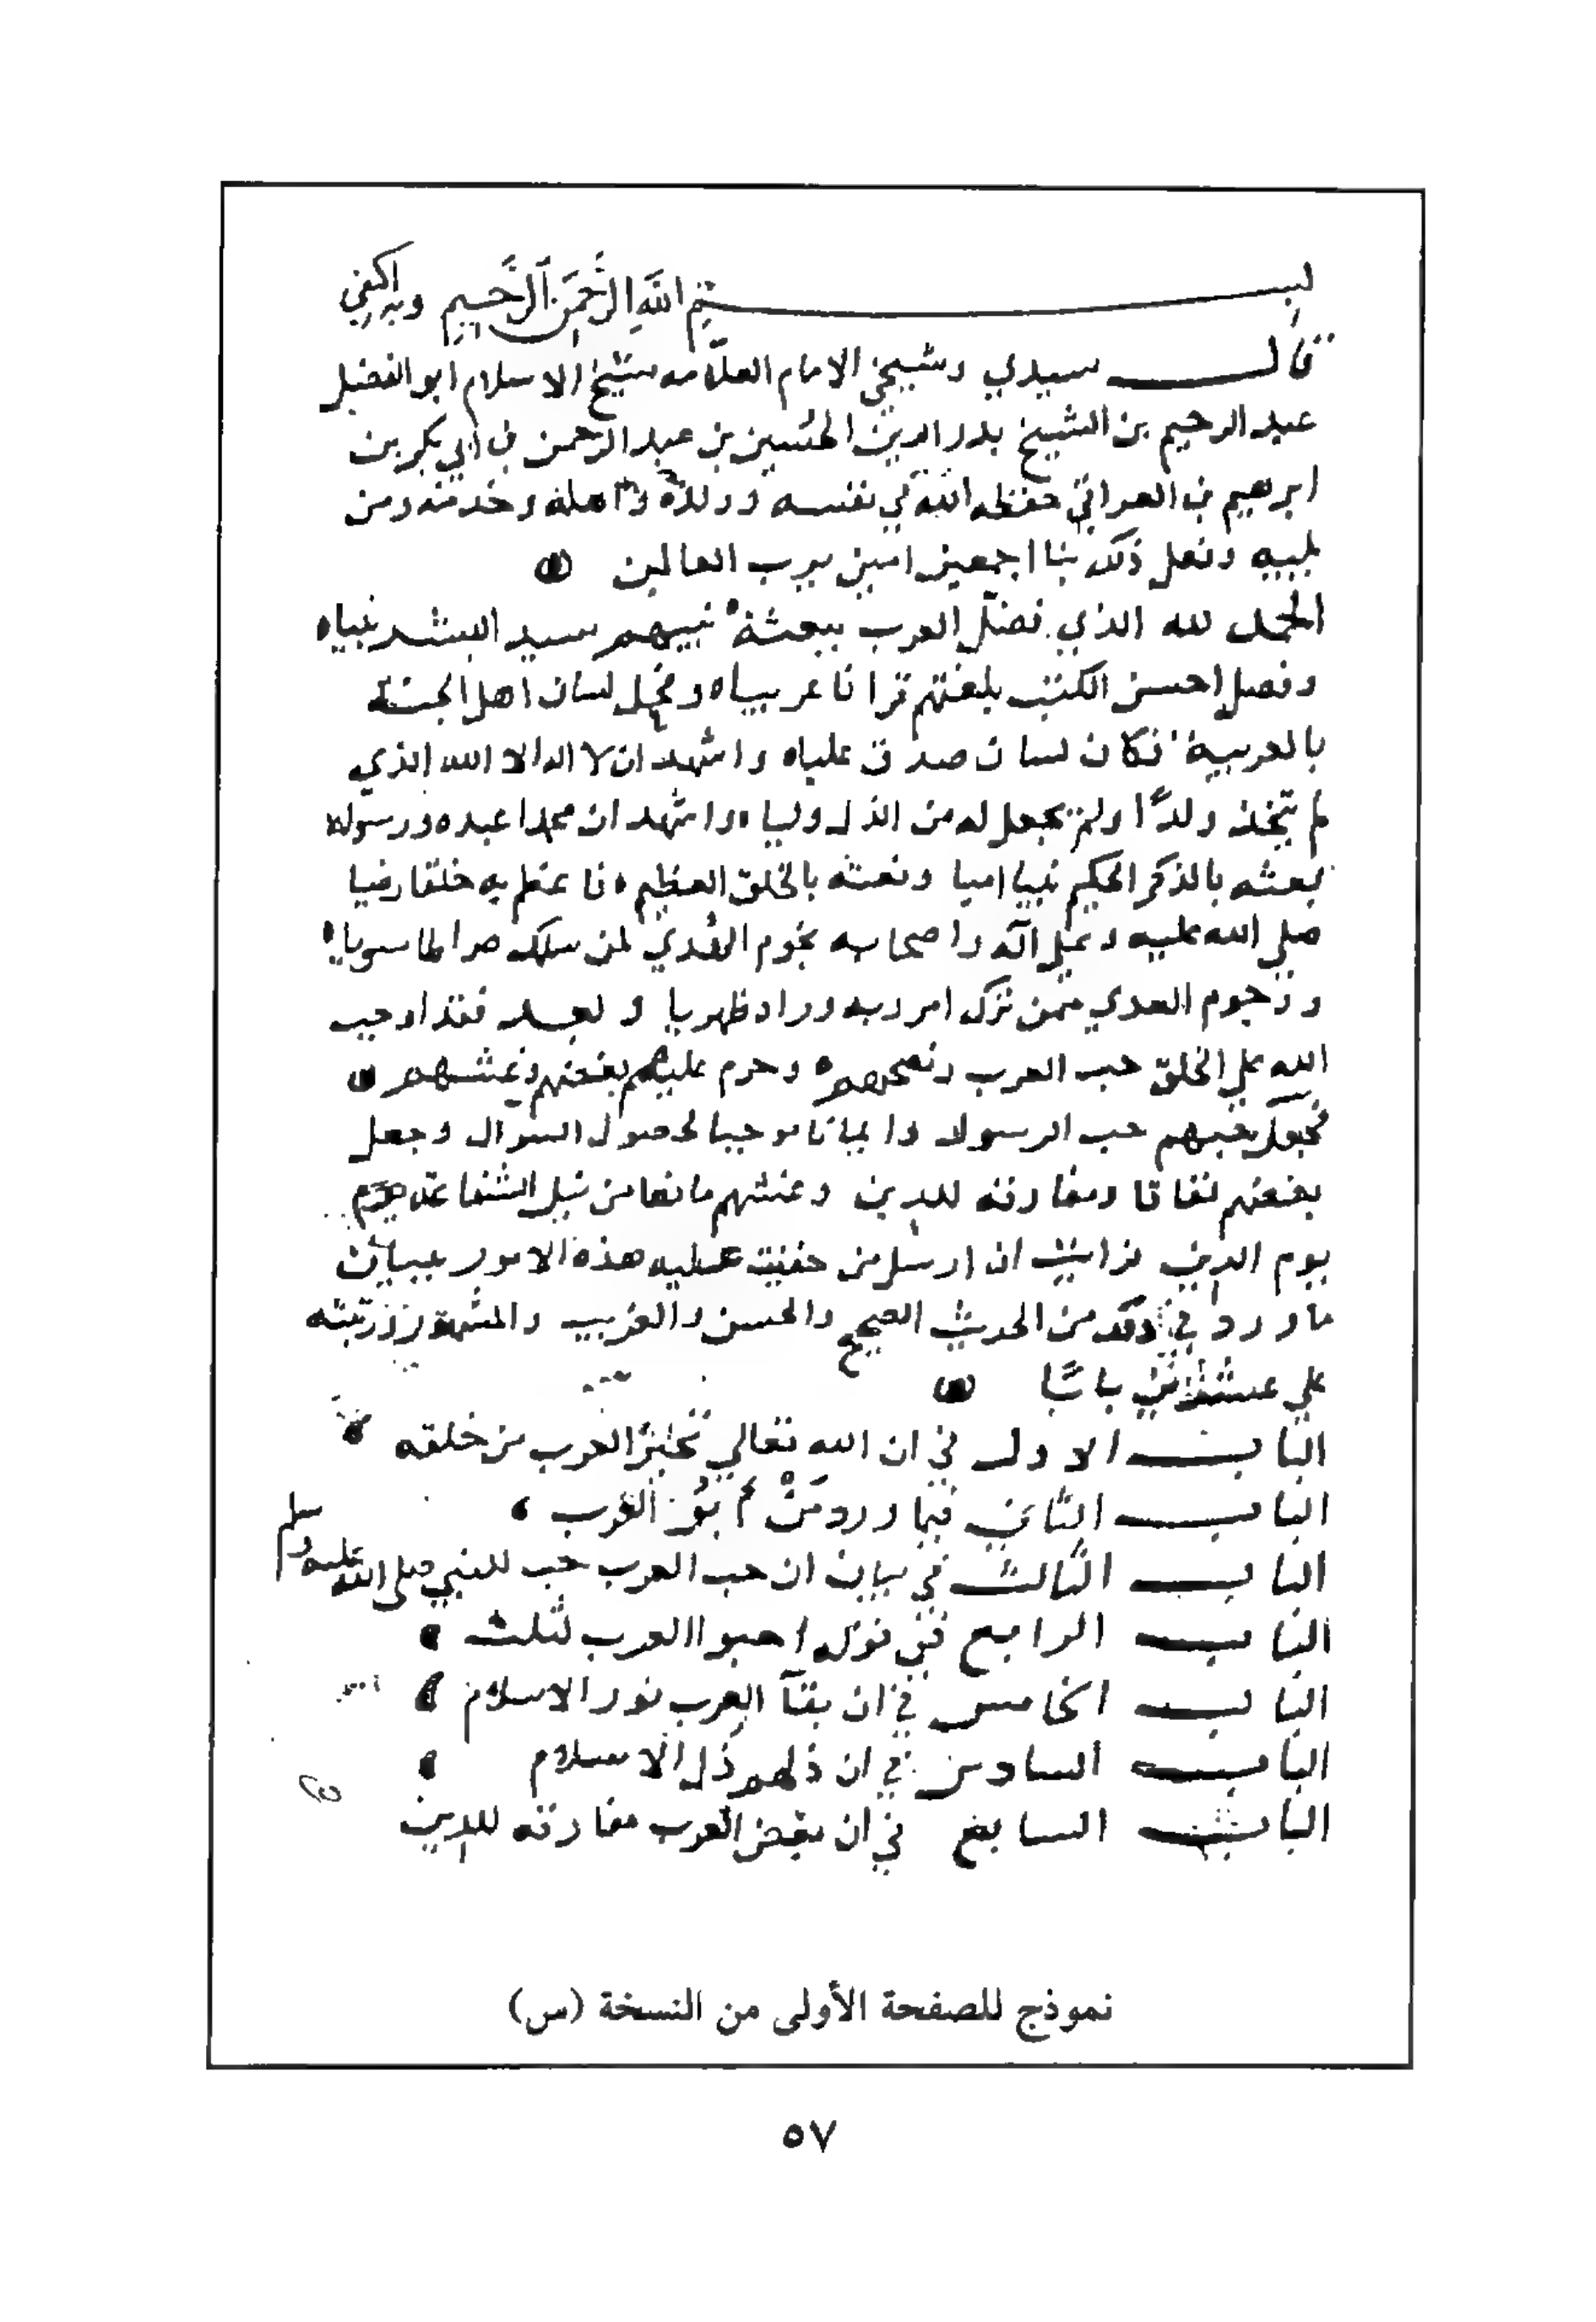 بسم الله الرحمن الرحيم وبه اكتفي
قال سيدي وشيخي الامام العلامه شيخ الاسلام ابو الفضل
عبد الرحيم بن الشيخ بدر الدين الحسين بن عبد الرحمن بن ابي بكر بن
ابرهيم بن العراقي حفظه الله في نفسه وولده واهله وخدمته ومن
يليه وفعل ذلك بنا اجمعين امين يرب العالمين
الحمد لله الذي فضل العرب ببعثة نبيهم سيد البشر نبياه
وفصل احسن الكتب بلغتهم قرانا عربياه وجمل لسان اهل الجنة
بالعربية فكان لسان صدق علياه واشهد ان لا اله الا الله الذي
لم يتخذ ولدًا ولم يجعل له من الذل وليا واشهد ان محمدا عبده ورسوله
بعثه بالذكر الحكيم نبيا اميا ونعته بالخلق العظيم فاعظم به خلقا رضيا
صلي الله عليه وعلي اله واصحابه نجوم الهدي لمن سلك صراطا سويا
ورجوم العدي ممن ترك امر ربه وراه ظهريا وبعد فقد اوجب
الله علي الخلق حب العرب ونصحهم وحرم عليهم بغضهم وغشهم
فجعل حبهم حب الرسول وايمانا موجبا لحصول السوال وجعل
بغضهم نفاقا ومفارقه للدين وغشهم مانعا من نيل الشفاعة
يوم الدين فرايت ان ارسل من خفيت عليه هذه الامور ببيان
ما ورد في ذلك من الحديث الصحيح والحسن والغريب والمشهور ورتبته
علي عشرين بابًا
الباب الاول في ان الله تعالي تخير العرب من خلقه
الباب الثاني فيما ورد من العرب
الباب الثالث في بيان ان حب العرب حب للنبي صلى الله عليه وسلم
الباب الرابع في قوله احبوا العرب لثلث
الباب الخامس في ان بقآ العرب نور الاسلام
الباب السادس في ان ذلهم ذل الاسلام
الباب السابع في ان بغض العرب مفارقه للدين
نموذج للصفحة الأولى من النسخة (س)
٥٧